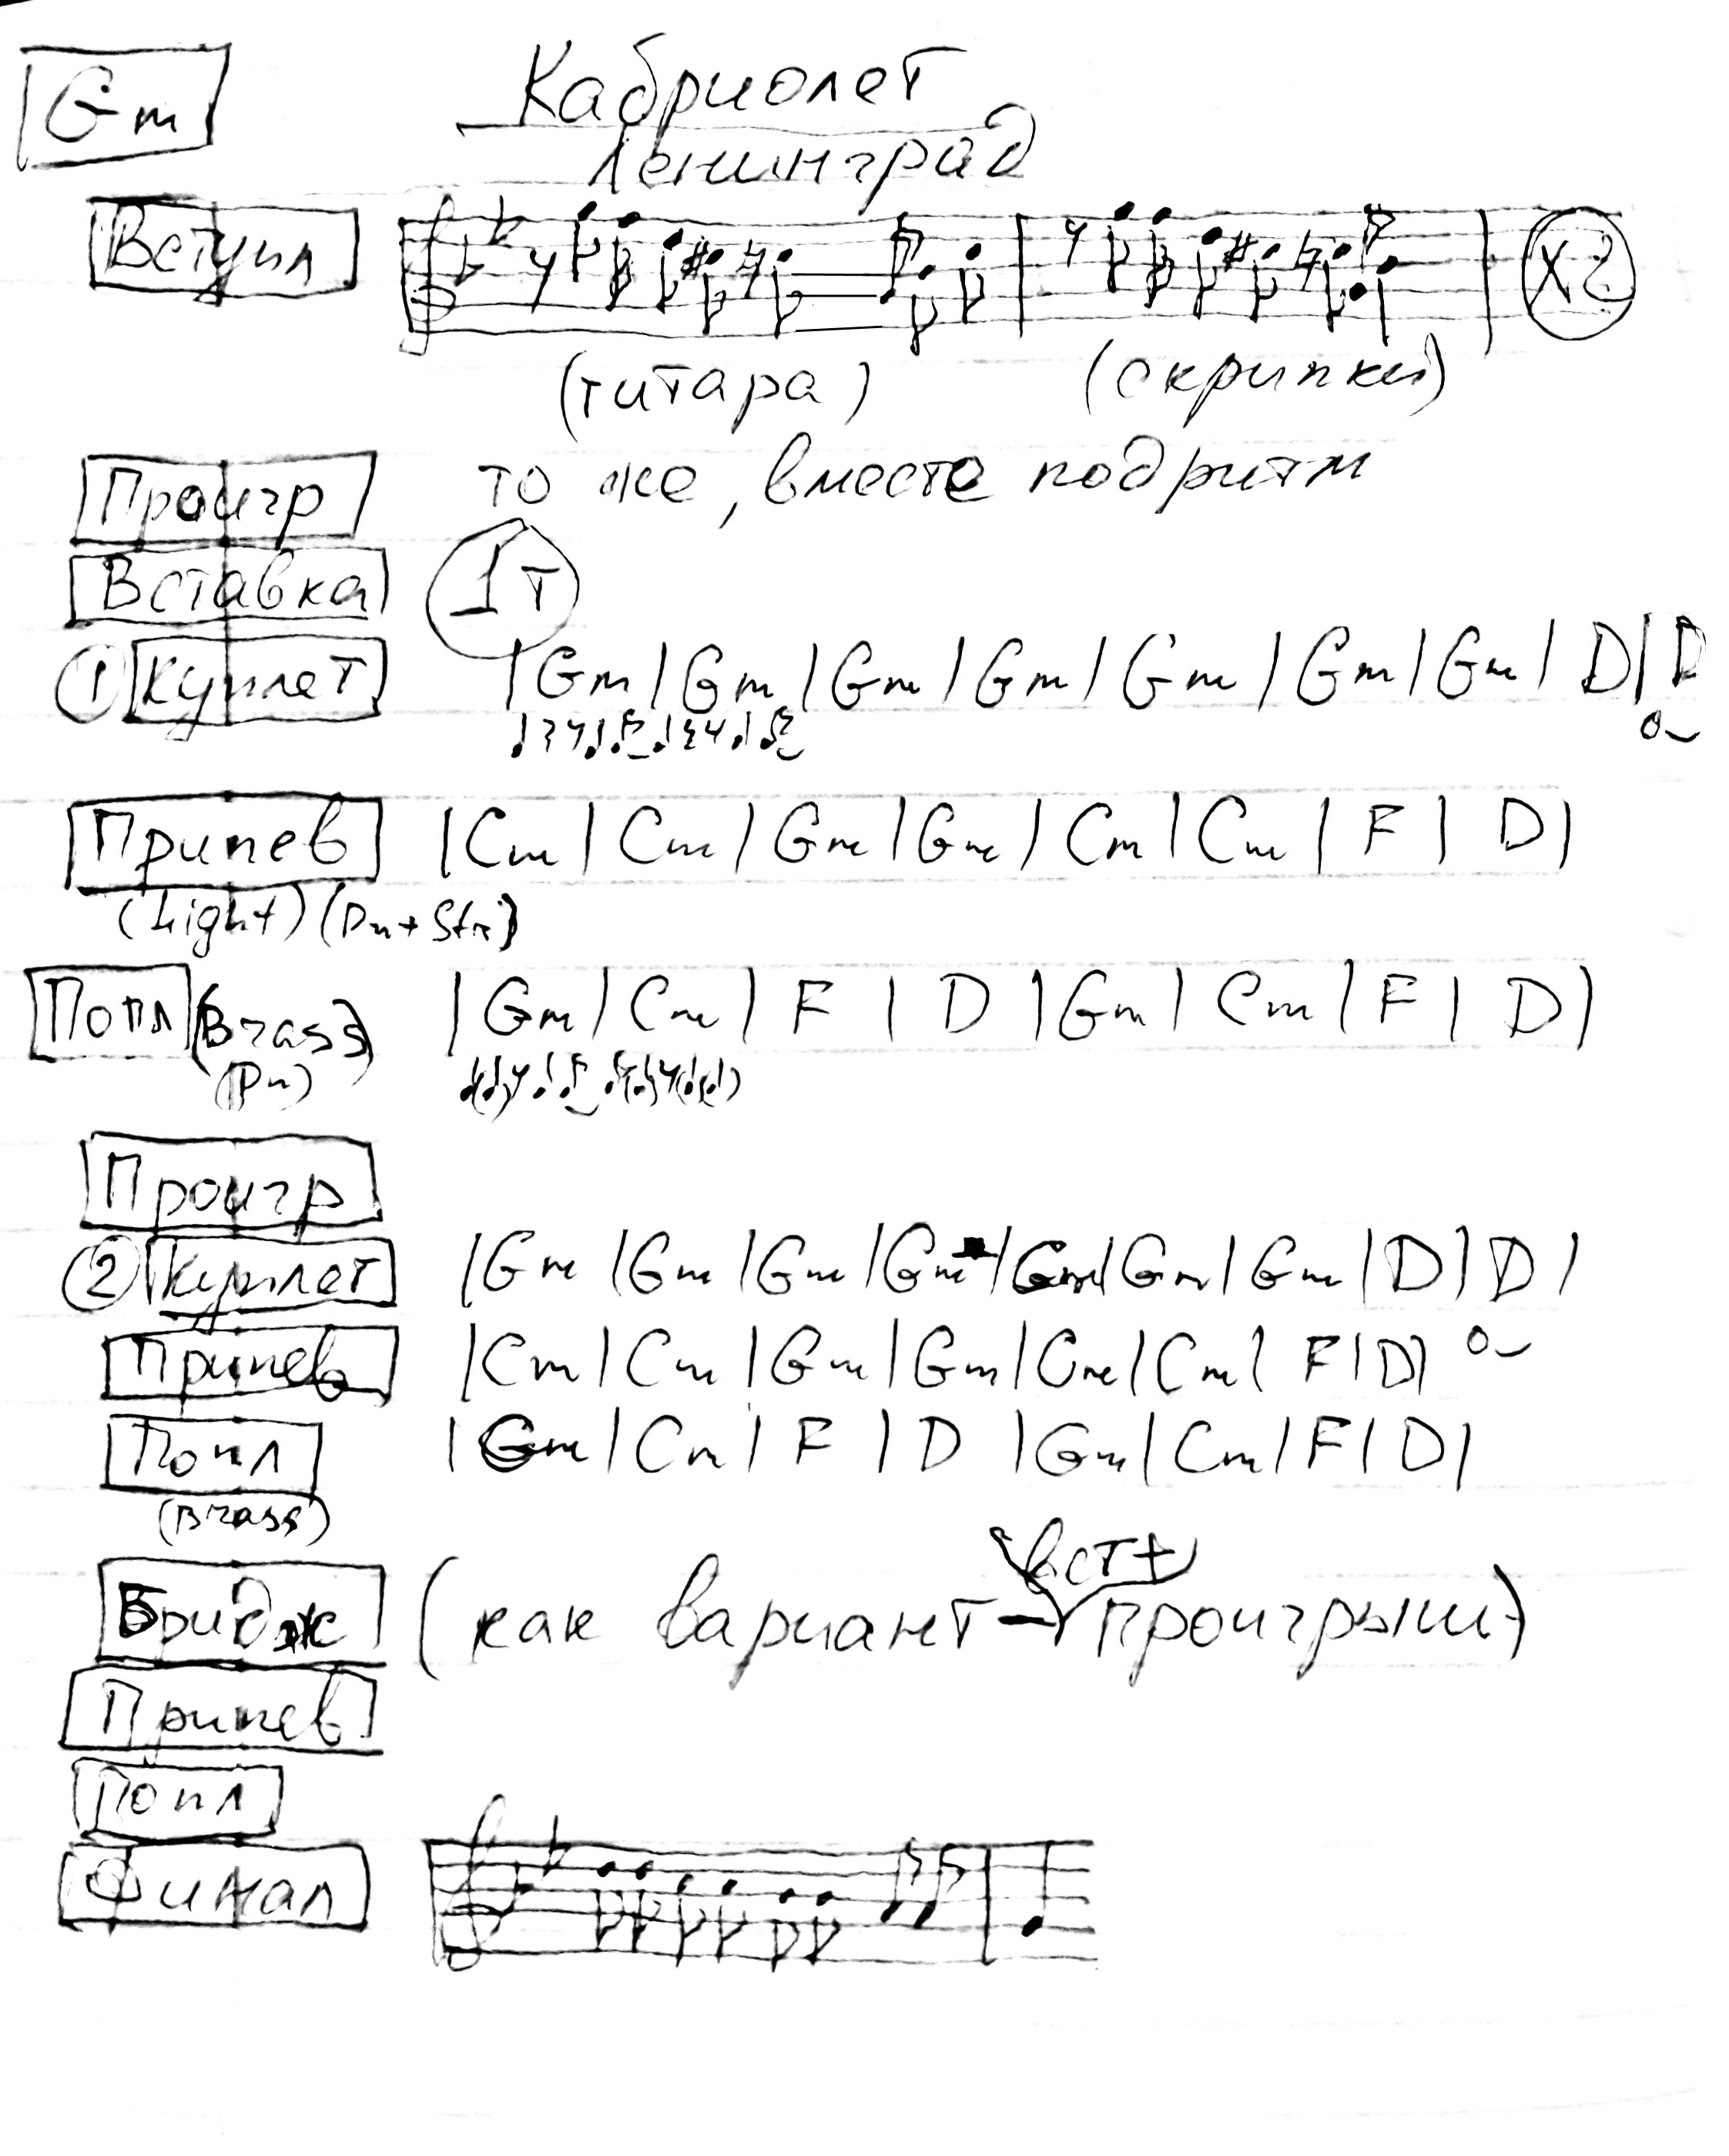 Gm
Кабриолет
Ленинград
Вступл
x2
(гитара) (скрипки)
Проигр то же, вместе под ритм
Вставка 1т
① Куплет | Gm | Gm | Gm | Gm | Gm | Gm | Gm | D | D
Припев | Cm | Cm | Gm | Gm | Cm | Cm | F | D |
(Light) (Pn + Str)
Попл (Brass) | Gm | Cm | F | D | Gm | Cm | F | D |
(Pn)
Проигр
② Куплет | Gm | Gm | Gm | Gm | Gm | Gm | Gm | D | D |
Припев | Cm | Cm | Gm | Gm | Cm | Cm | F | D |
Попл | Gm | Cm | F | D | Gm | Cm | F | D |
(Brass)
вст +
Бридж (как вариант – проигрыш)
Припев
Попл
Финал